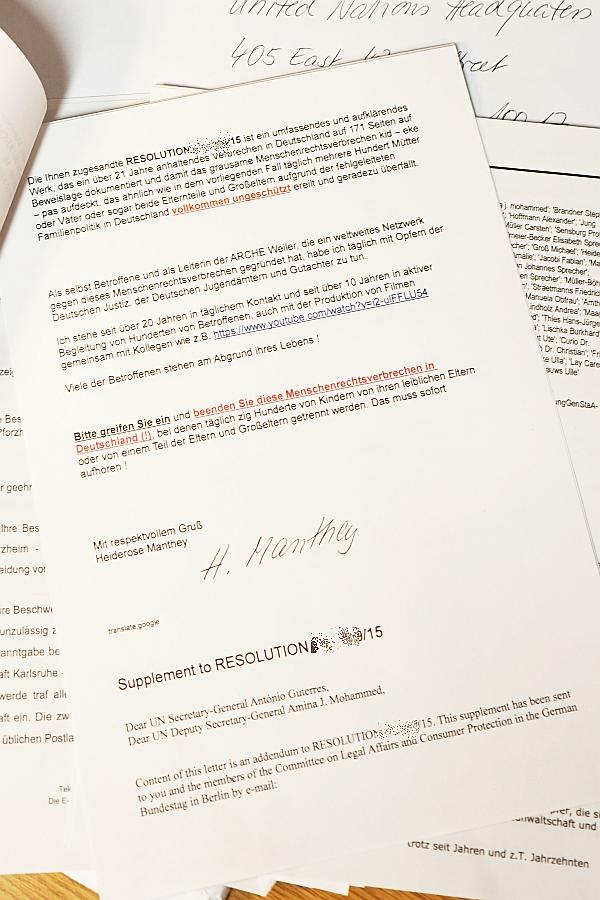 United Nations Headquaters
405 East 42 Street
100 17
Die Ihnen zugesandte RESOLUTION /15 ist ein umfassendes und aufklärendes
Werk, das ein über 21 Jahre anhaltendes Verbrechen in Deutschland auf 171 Seiten auf
Beweislage dokumentiert und damit das grausame Menschenrechtsverbrechen kid – eke
– pas aufdeckt, das ähnlich wie in dem vorliegenden Fall täglich mehrere Hundert Mütter
oder Väter oder sogar beide Elternteile und Großeltern aufgrund der fehlgeleiteten
Familienpolitik in Deutschland vollkommen ungeschützt ereilt und geradezu überfällt.
Als selbst Betroffene und als Leiterin der ARCHE Weiler, die ein weltweites Netzwerk
gegen dieses Menschenrechtsverbrechen gegründet hat, habe ich täglich mit Opfern der
Deutschen Justiz, der Deutschen Jugendämtern und Gutachter zu tun.
Ich stehe seit über 20 Jahren in täglichem Kontakt und seit über 10 Jahren in aktiver
Begleitung von Hunderten von Betroffenen, auch mit der Produktion von Filmen
gemeinsam mit Kollegen wie z.B. https://www.youtube.com/watch?v=i2-uIFFLU54
Viele der Betroffenen stehen am Abgrund ihres Lebens !
Bitte greifen Sie ein und beenden Sie diese Menschenrechtsverbrechen in
Deutschland (!), bei denen täglich zig Hunderte von Kindern von ihren leiblichen Eltern
oder von einem Teil der Eltern und Großeltern getrennt werden. Das muss sofort
aufhören !
Mit respektvollem Gruß
Heiderose Manthey
H. Manthey
translate.google
Supplement to RESOLUTION /15
Dear UN Secretary-General António Guterres,
Dear UN Deputy Secretary-General Amina J. Mohammed,
Content of this letter is an addendum to RESOLUTION /15. This supplement has been sent
to you and the members of the Committee on Legal Affairs and Consumer Protection in the German
Bundestag in Berlin by e-mail:
j. mohammed'; 'Brandner Step
'Hoffmann Alexander'; 'Jung
Müller Carsten'; 'Sensburg Pro
meier-Becker Elisabeth Spre
cher'; 'Groß Michael'; 'Heide
Amalie'; 'Jacobi Fabian'; 'Ma
n Johannes Sprecher';
Sprecher'; 'Müller-Böh
'; 'Straetmanns Friedric
Manuela Obfrau'; 'Amth
undholz Andrea'; 'Maa
nd'; 'Thies Hans-Jürge
'; 'Lischka Burkhard
t Ute'; 'Curio Dr.
Dr. Christian'; 'Fri
e Ulla'; 'Lay Care
auws Ulle'
ungGenStaA-
r geehr
Ihre Bes
rzheim -
eidung vor
re Beschw
unzulässig z
anntgabe be
aft Karlsruhe
werde traf alle
aft ein. Die zw
üblichen Postla
Tel
Die E-
er, die si
nwaltschaft und
trotz seit Jahren und z.T. Jahrzehnten